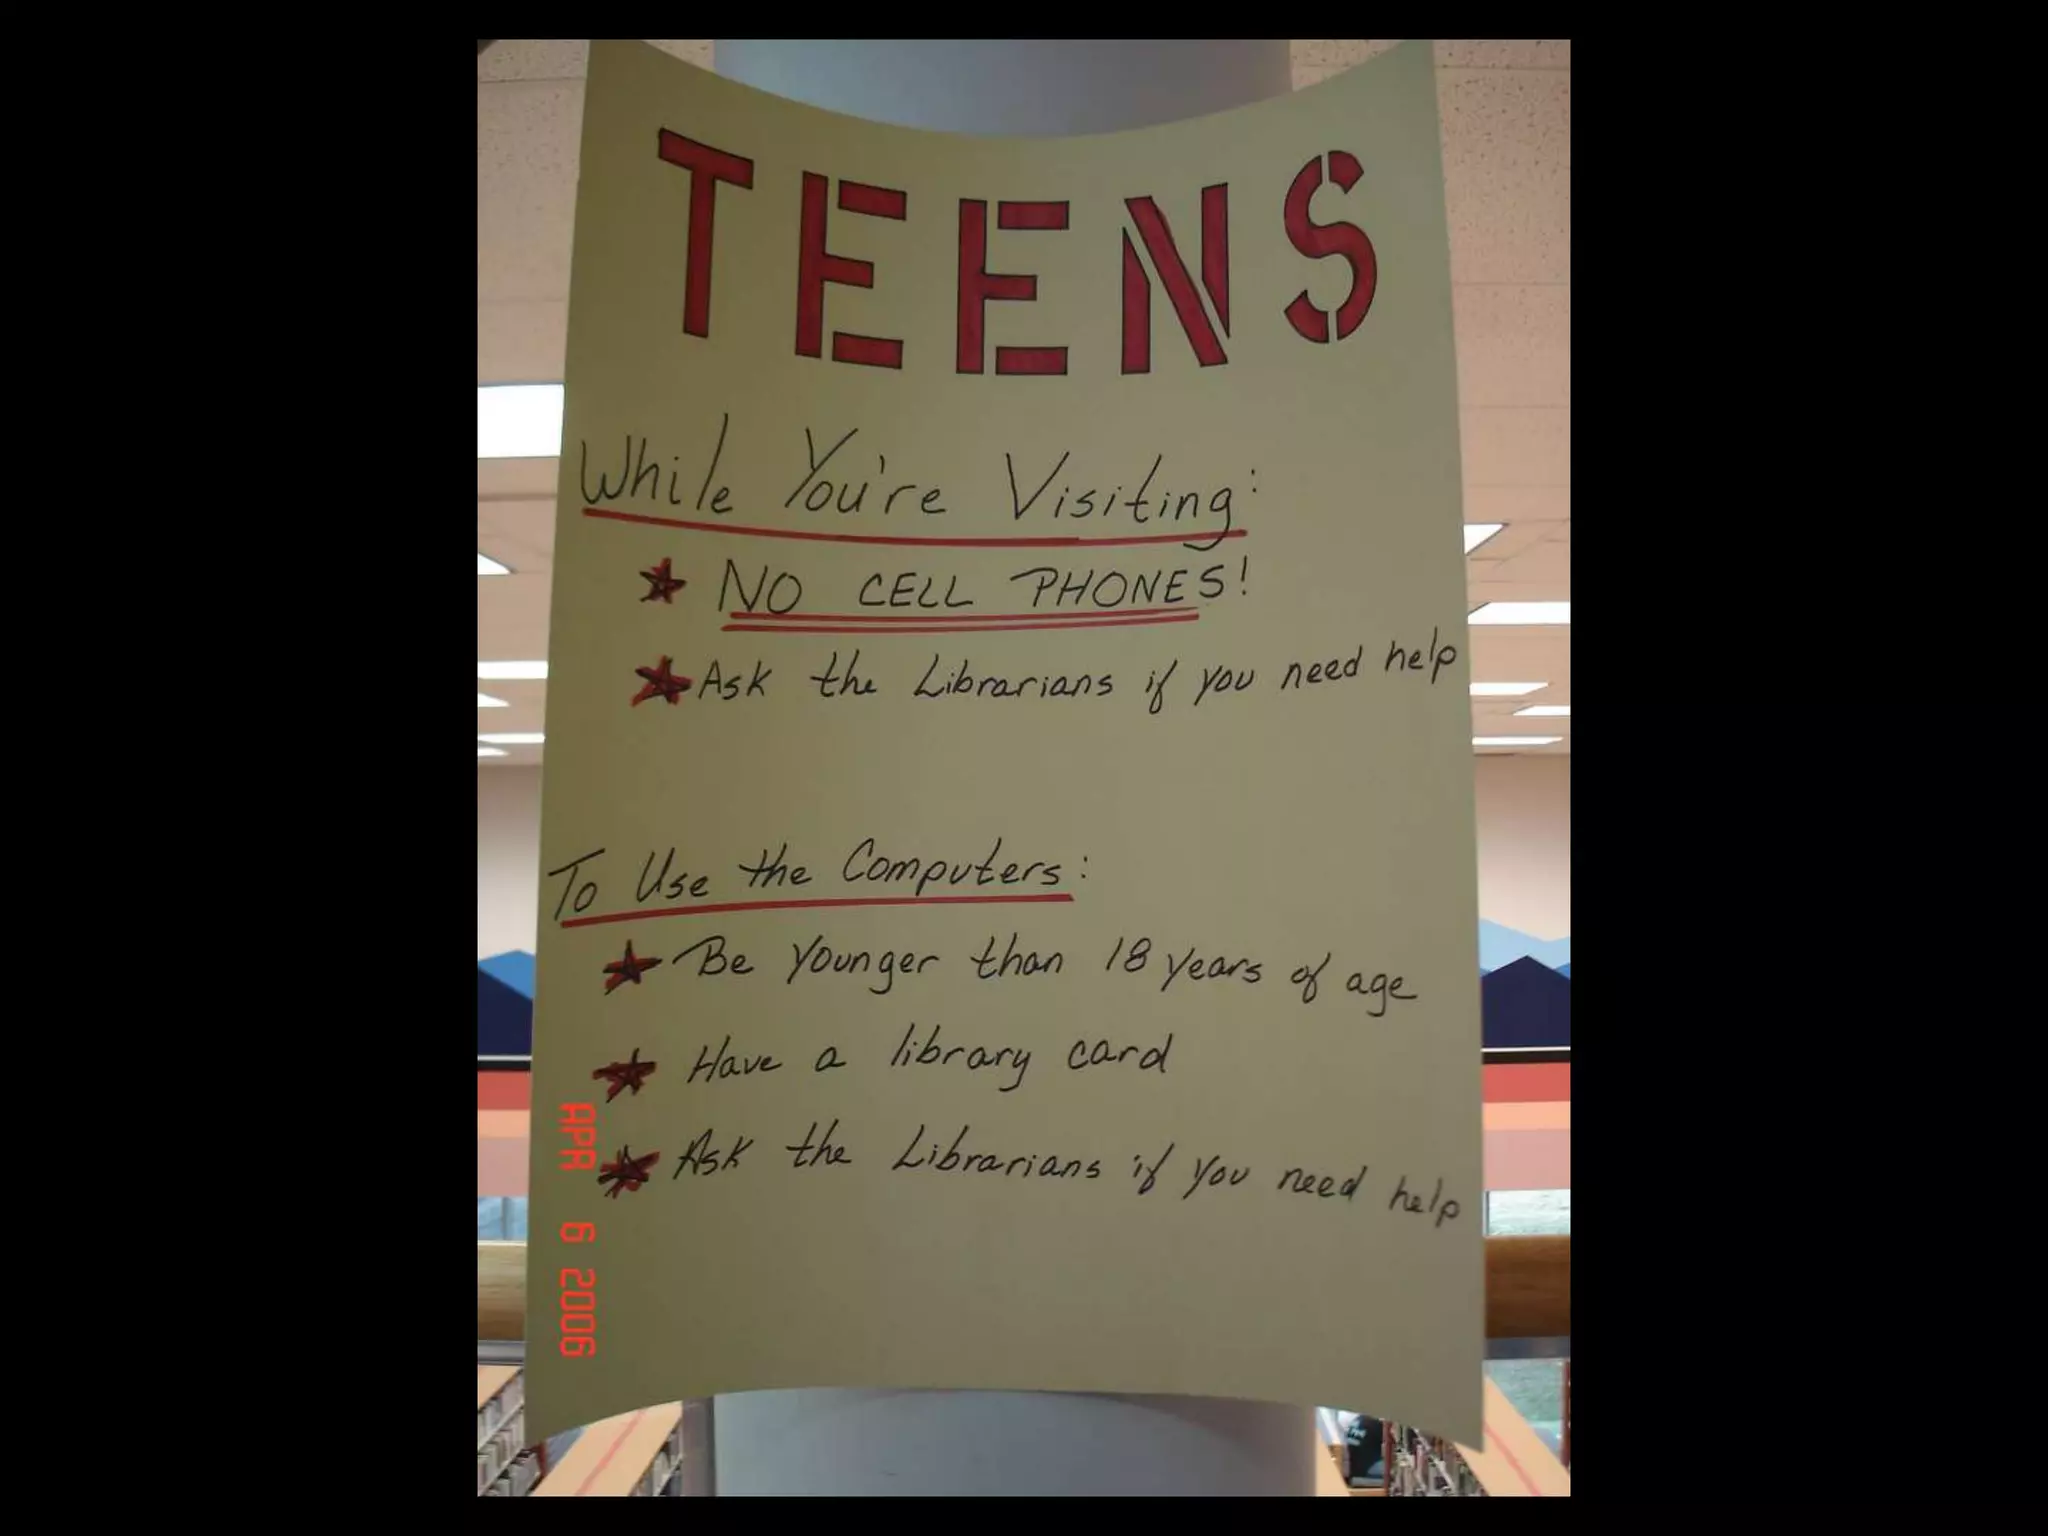 TEENS
While You're Visiting:
NO CELL PHONES!
Ask the Librarians if you need help
To Use the Computers:
Be younger than 18 years of age
Have a library card
Ask the Librarians if you need help
APR 6 2006